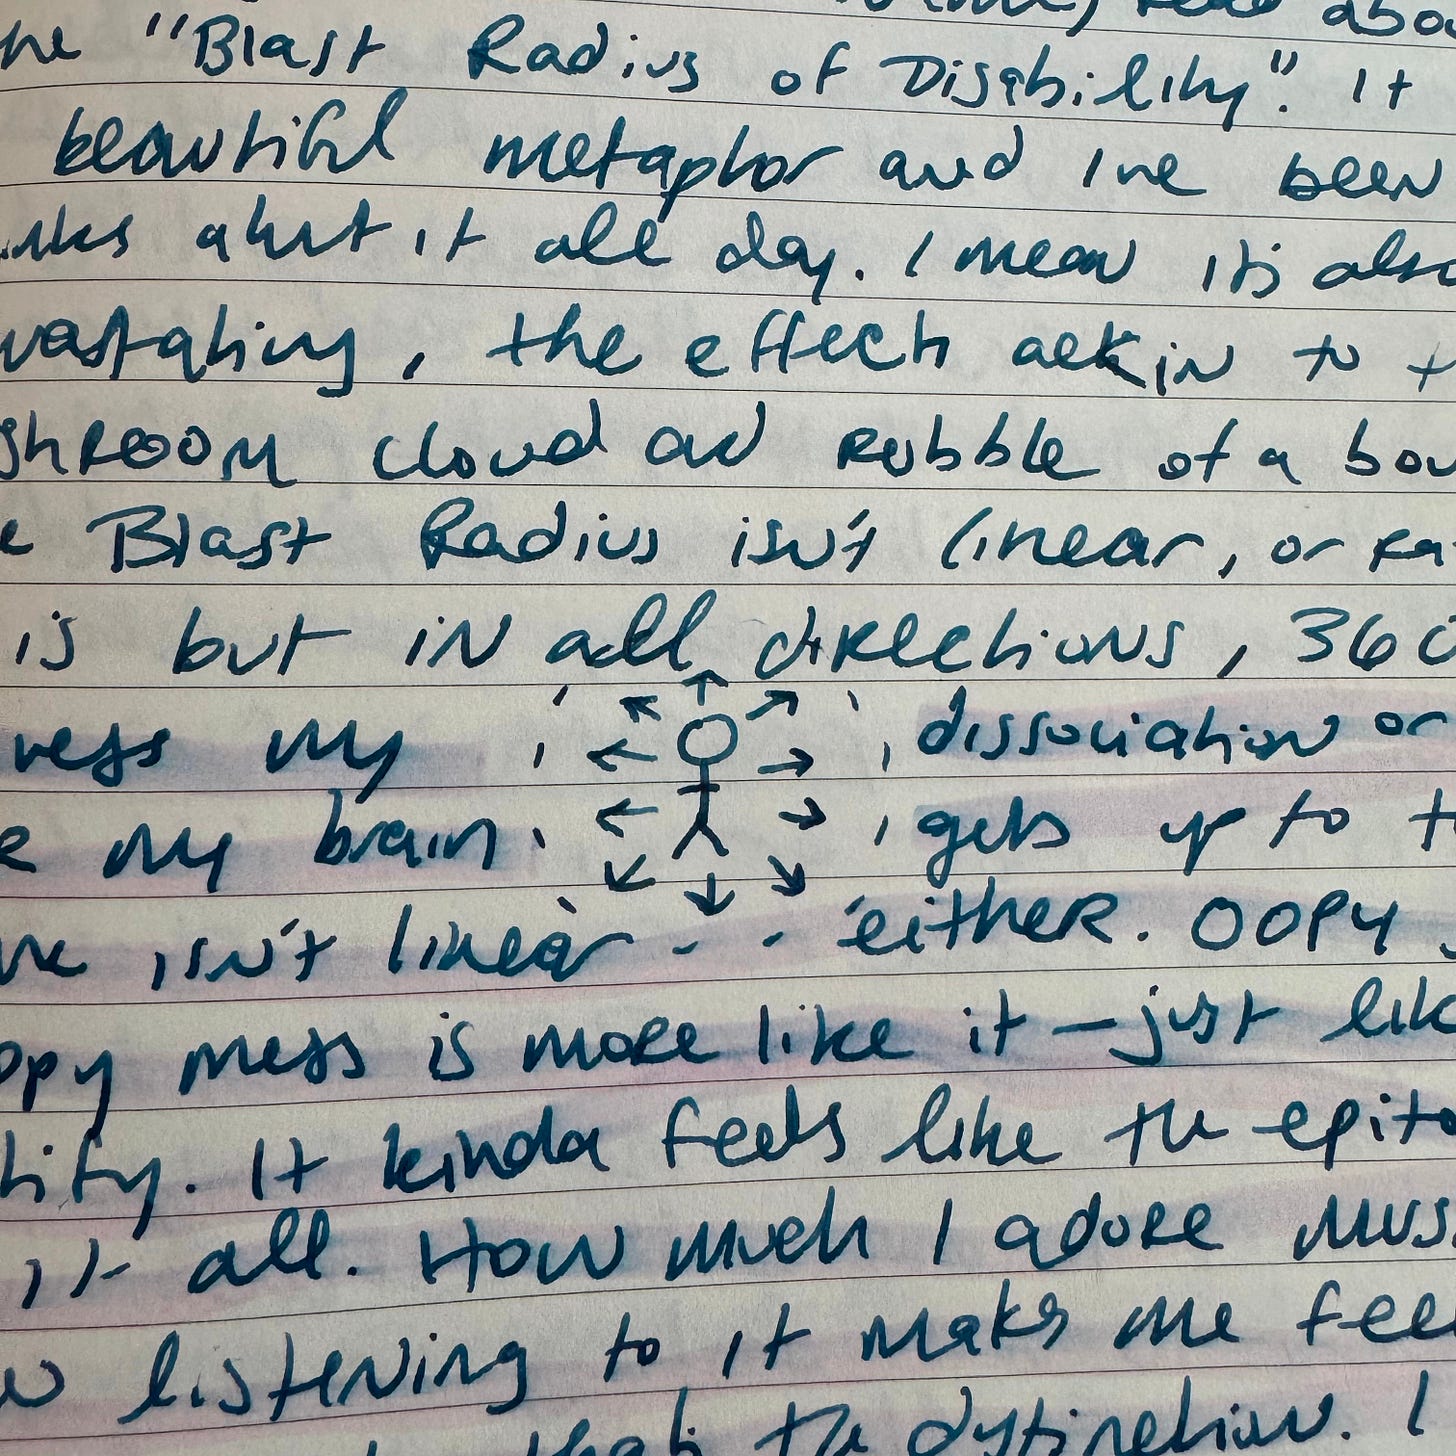 he "Blast Radius of Disability". It
beautiful metaphor and Ive been
about it all day. I mean it's also
vastating, the effects aekin to t
shroom cloud and rubble of a bo
e Blast Radius isn't linear, or ra
is but in all directions, 360
ress my dissociation or
e my brain gets up to t
isn't linear - - either. OOPY
opy mess is more like it - just lik
lity. It kinda feels like the epito
it all. How much I adore mus
w listening to it makes me fee
the dystinction. I